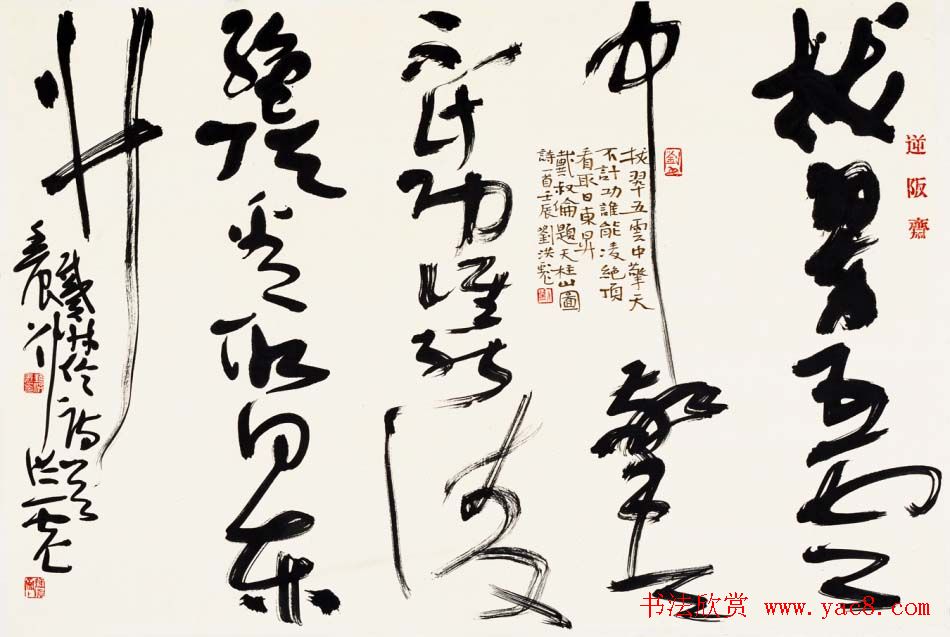 逆阪齋
拔翠五云
中擎天
不計功誰能凌
絕頂看取日東
升
拔翠五雲中擎天
不計功誰能凌絕頂
看取日東昇
戴叔倫題天柱山圖
詩一首壬辰劉洪彪
戴叔倫詩
壬辰劉洪彪
书法欣赏 www.yac8.com